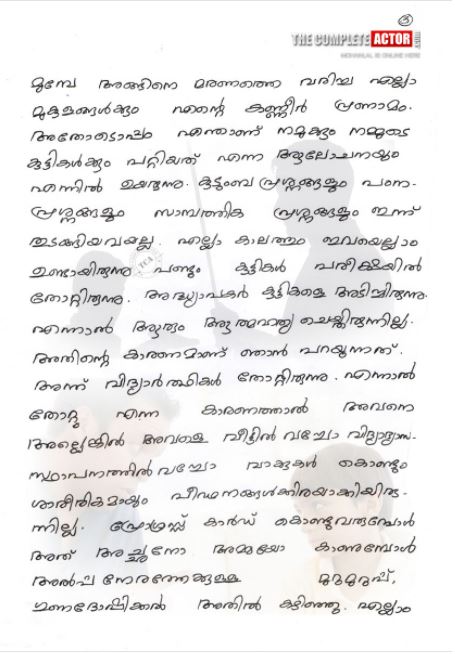 3
THE COMPLETE ACTOR.com
MOHANLAL IS ONLINE HERE
മുമ്പേ അങ്ങിനെ മരണത്തെ വരിച്ച എല്ലാ
മുകുളങ്ങൾക്കും എന്റെ കണ്ണീർ പ്രണാമം.
അതോടൊപ്പം എന്താണ് നമുക്കും നമ്മുടെ
കുട്ടികൾക്കും പറ്റിയത് എന്ന ആലോചനയും
എന്നിൽ ഉയരുന്നു. കുടുംബ പ്രശ്നങ്ങളും പഠന-
പ്രശ്നങ്ങളും സാമ്പത്തിക പ്രശ്നങ്ങളും ഇന്ന്
തുടങ്ങിയവയല്ല. എല്ലാ കാലത്തും ഇവയെല്ലാം
ഉണ്ടായിരുന്നു പണ്ടും കുട്ടികൾ പരീക്ഷയിൽ
തോറ്റിരുന്നു. അദ്ധ്യാപകർ കുട്ടികളെ അടിച്ചിരുന്നു.
എന്നാൽ ആരും ആത്മഹത്യ ചെയ്തിരുന്നില്ല.
അതിന്റെ കാരണമാണ് ഞാൻ പറയുന്നത്.
അന്ന് വിദ്യാർത്ഥികൾ തോറ്റിരുന്നു. എന്നാൽ
തോറ്റു എന്ന കാരണത്താൽ അവനെ
അല്ലെങ്കിൽ അവളെ വീട്ടിൽ വച്ചോ വിദ്യാഭ്യാസ-
സ്ഥാപനത്തിൽ വച്ചോ വാക്കുകൾ കൊണ്ടും
ശാരീരികമായും പീഢനങ്ങൾക്കിരയാക്കിയിരു-
ന്നില്ല. പ്രോഗ്രസ്സ് കാർഡ് കൊണ്ടുവരുമ്പോൾ
അത് അച്ഛനോ അമ്മയോ കാണുമ്പോൾ
അൽപ്പ നേരത്തേക്കുള്ള മുറുമുറുപ്പ്,
ഗുണദോഷിക്കൽ അതിൽ കഴിഞ്ഞു. എല്ലാം